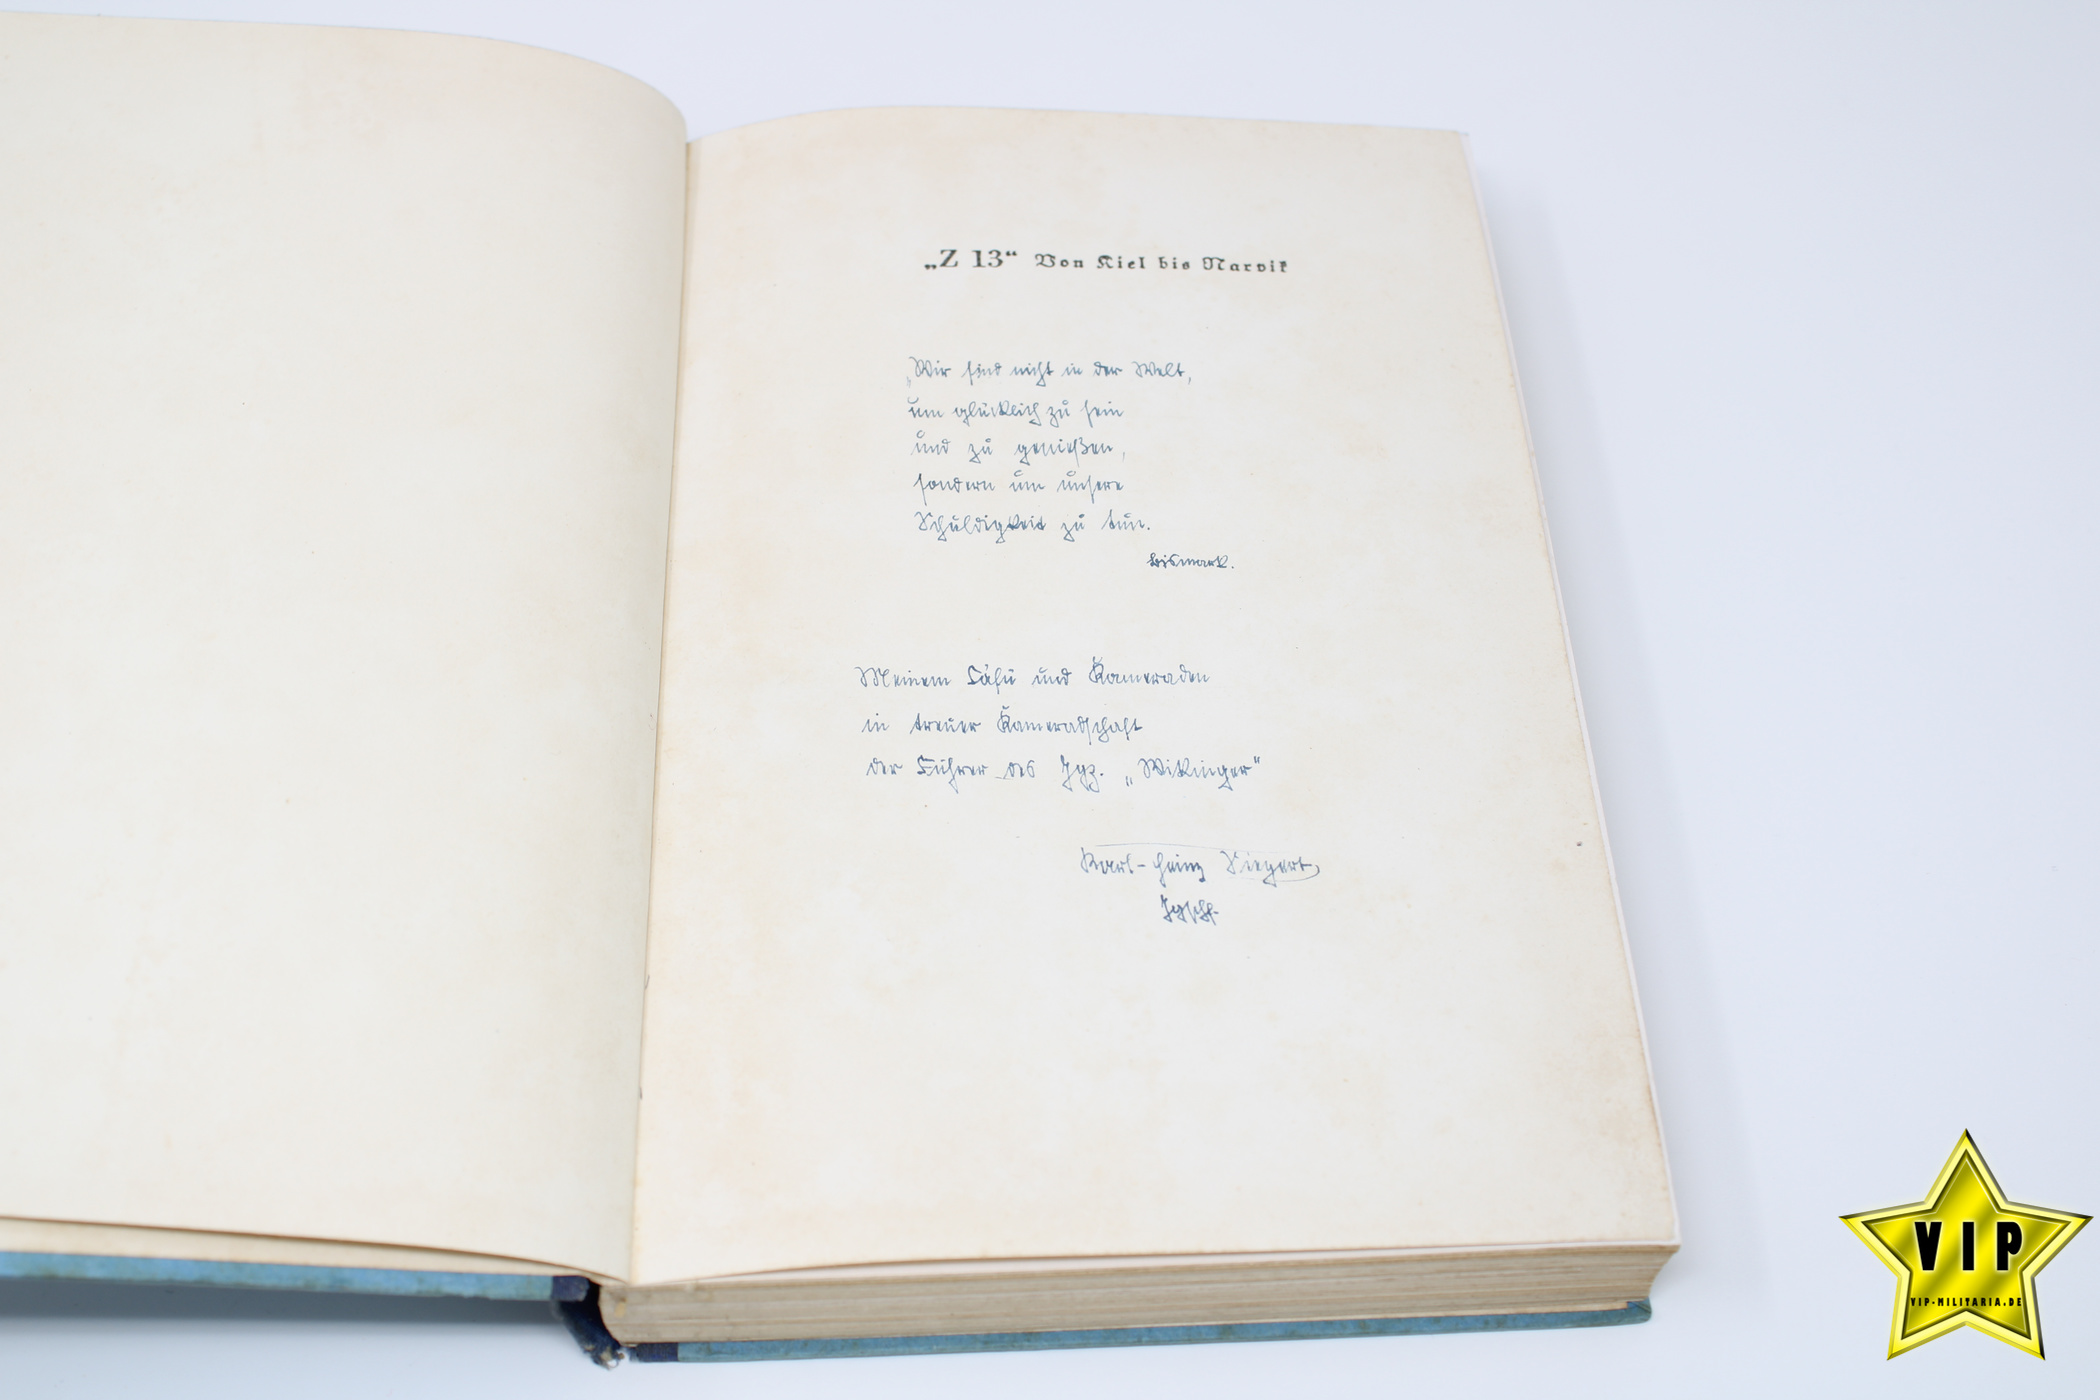 „Z 13“ Von Kiel bis Narvik
„Wir sind nicht in der Welt,
um glücklich zu sein
und zu genießen,
sondern um unsere
Schuldigkeit zu tun.
Bismark.
Meinem Fäfü und Kameraden
in treuer Kameradschaft
der Führer des Jgz. „Wikinger“
Karl-Heinz Siegert
Jgschf.
VIP
VIP-MILITARIA.DE